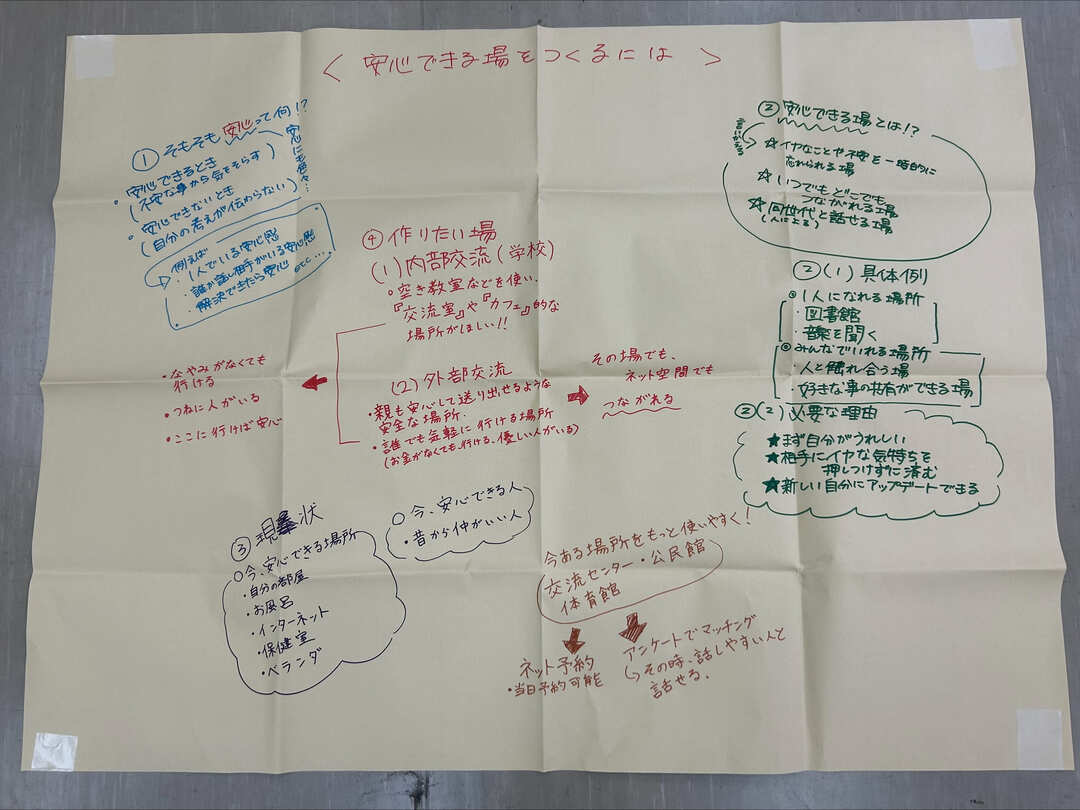 〈 安心できる場をつくるには 〉
① そもそも安心って何!?
安心にも色々…
・安心できるとき
(不安な事から気をそらす)
・安心できないとき
(自分の考えが伝わらない)
例えば
・1人でいる安心感
・誰か話し相手がいる安心感
・解決できたら安心 etc…
② 安心できる場とは!?
言いかえる
☆イヤなことや不安を一時的に
忘れられる場
☆いつでもどこでも
つながれる場
☆同世代と話せる場
(人による)
②(1) 具体例
◎1人になれる場所
・図書館
・音楽を聞く
◎みんなでいれる場所
・人と触れ合う場
・好きな事の共有ができる場
②(2) 必要な理由
★まず自分がうれしい
★相手にイヤな気持ちを
押しつけずに済む
★新しい自分にアップデートできる
③ 現状
○今、安心できる場所
・自分の部屋
・お風呂
・インターネット
・保健室
・ベランダ
○今、安心できる人
・昔から仲がいい人
④ 作りたい場
(1)内部交流(学校)
・空き教室などを使い、
『交流室』や『カフェ』的な
場所がほしい!!
(2)外部交流
・親も安心して送り出せるような
安全な場所.
・誰でも気軽に行ける場所
(お金がなくても、行ける、優しい人がいる)
・なやみがなくても
行ける
・つねに人がいる
・ここに行けば安心
その場でも、
ネット空間でも
つながれる
今ある場所をもっと使いやすく!
交流センター・公民館
体育館
ネット予約
・当日予約可能
アンケートでマッチング
その時、話しやすい人と
話せる.